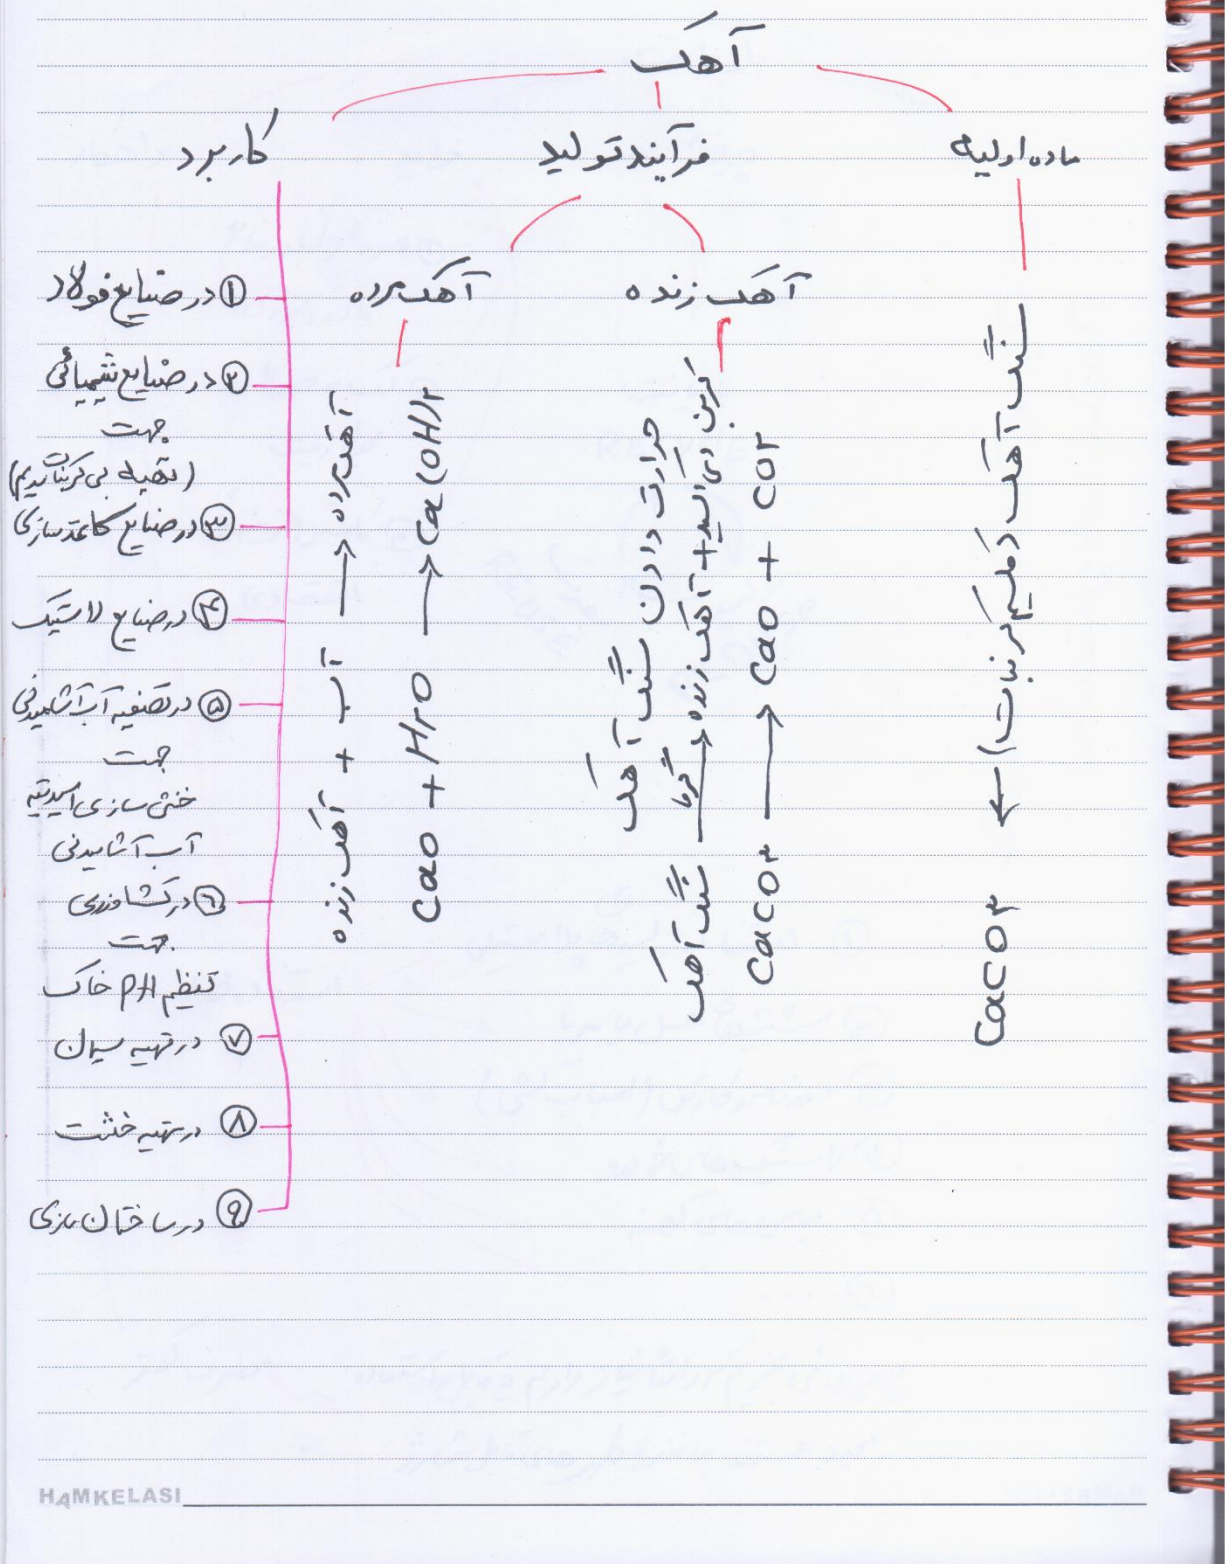 آهک
ماده اولیه
فرآیند تولید
کاربرد
سنگ آهک (کلسیم کربنات) ←
CaCO۳
آهک زنده
حرارت دادن سنگ آهک
سنگ آهک —گرما→ آهک زنده + کربن دی اکسید
CaCO۳ → CaO + CO۲
آهک مرده
آهک زنده + آب → آهک مرده
CaO + H۲O → Ca(OH)۲
① در صنایع فولاد
② در صنایع شیمیائی
جهت
(تهیه بی کربنات سدیم)
③ در صنایع کاغذ سازی
④ در صنایع لاستیک
⑤ در تصفیه آب آشامیدنی
جهت
خنثی سازی اسیدیته
آب آشامیدنی
⑥ در کشاورزی
جهت
تنظیم PH خاک
⑦ در تهیه سیمان
⑧ در تهیه خشت
⑨ در ساختمان سازی
HAMKELASI